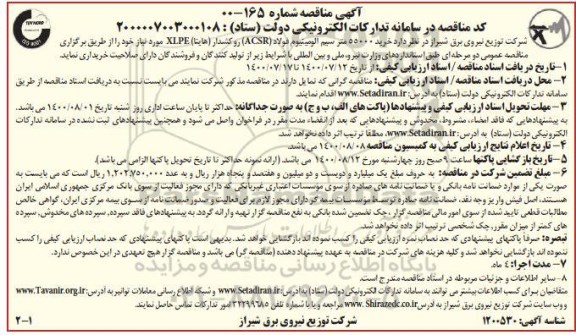 آگهی مناقصه شماره ۱۶۵-۰۰
کد مناقصه در سامانه تدارکات الکترونیکی دولت (ستاد) : ۲۰۰۰۰۰۷۰۰۳۰۰۰۱۰۸
شرکت توزیع نیروی برق شیراز در نظر دارد خرید ۵۵۰۰۰ متر سیم آلومینیوم فولاد (ACSR) روکشدار (هاینا) XLPE مورد نیاز خود را از طریق برگزاری
مناقصه عمومی دو مرحله‌ای طبق استانداردهای وزارت نیرو، ملی و بین المللی با شرایط زیر از تولید کنندگان و فروشندگان دارای صلاحیت خریداری نماید.
۱- تاریخ دریافت اسناد مناقصه / اسناد ارزیابی کیفی: از تاریخ ۱۴۰۰/۰۷/۱۲ تا ۱۴۰۰/۰۷/۱۷
۲- محل دریافت اسناد مناقصه / اسناد ارزیابی کیفی: مناقصه گرانی که تمایل دارند در مناقصه مذکور شرکت نمایند می بایست نسبت به دریافت اسناد مناقصه از طریق
سامانه تدارکات الکترونیکی دولت (ستاد) به آدرس: www.Setadiran.ir اقدام نمایند.
۳- مهلت تحویل اسناد ارزیابی کیفی و پیشنهادها (پاکت های الف، ب و ج) به صورت جداگانه: حداکثر تا پایان ساعت اداری روز شنبه تاریخ ۱۴۰۰/۰۸/۰۱ می باشد.
به پیشنهادهایی که فاقد امضاء، مشروط، مخدوش و پیشنهادهایی که بعد از انقضاء مدت مقرر در فراخوان واصل می شود و همچنین پیشنهادهای ثبت نشده در سامانه تدارکات
الکترونیکی دولت (ستاد) به آدرس: www.Setadiran.ir، مطلقا ترتیب اثر داده نخواهد شد.
۴- تاریخ اعلام نتایج ارزیابی کیفی به کمیسیون مناقصه ۱۴۰۰/۰۸/۰۸ می باشد.
۵- تاریخ بازگشایی پاکتها ساعت ۹ صبح روز چهارشنبه مورخ ۱۴۰۰/۰۸/۱۲ می باشد. (ارائه نمونه حداکثر تا تاریخ تحویل پاکتها الزامی می باشد).
۶- مبلغ تضمین شرکت در مناقصه: به حروف مبلغ یک میلیارد و دویست و دو میلیون و هفتصد و پنجاه هزار ریال و به عدد ۱,۲۰۲,۷۵۰,۰۰۰ ریال است که می بایست به
صورت یکی از موارد ضمانت نامه بانکی و یا ضمانت نامه های صادره از سوی موسسات اعتباری غیربانکی که دارای مجوز فعالیت از سوی بانک مرکزی جمهوری اسلامی ایران
هستند، اصل فیش واریز وجه نقد، ضمانت نامه صادره توسط موسسات بیمه گر دارای مجوز لازم برای فعالیت و صدور ضمانت نامه از سوی بیمه مرکزی ایران، گواهی خالص
مطالبات قطعی تایید شده از سوی امور مالی مناقصه گزار، چک تضمین شده بانکی به نفع مناقصه گزار تهیه و ارائه گردد. به پیشنهادهای فاقد سپرده، سپرده های مخدوش، سپرده
های کمتر از میزان مقرر، چک شخصی ترتیب اثر داده نخواهد شد.
تبصره: صرفا پاکتهای پیشنهادی که حد نصاب نمره ارزیابی کیفی را کسب نموده اند بازگشایی خواهد شد. بدیهی است پاکتهای پیشنهادی که حد نصاب ارزیابی کیفی را کسب
ننموده اند بازگشایی نخواهد شد و کلیه هزینه های شرکت در مناقصه به عهده پیشنهاد دهنده (مناقصه گر) می باشد و مناقصه گزار هیچ تعهدی در این خصوص ندارد.
۷- مدت اجرا: ۴ ماه.
۸- سایر اطلاعات و جزئیات مربوطه در اسناد مناقصه مندرج است.
متقاضیان برای کسب اطلاعات بیشتر می توانند به سامانه تدارکات الکترونیکی دولت (ستاد) به آدرس: www.Setadiran.ir و شبکه اطلاع رسانی معاملات توانیر به آدرس: www.Tavanir.org.ir
و وب سایت شرکت توزیع نیروی برق شیراز به آدرس www.Shirazedc.co.ir مراجعه و یا با شماره تلفن ۳۲۲۹۹۶۸۵ امور تدارکات تماس حاصل نمایند.
شناسه آگهی: ۱۲۰۰۵۳۰
شرکت توزیع نیروی برق شیراز
۲-۱